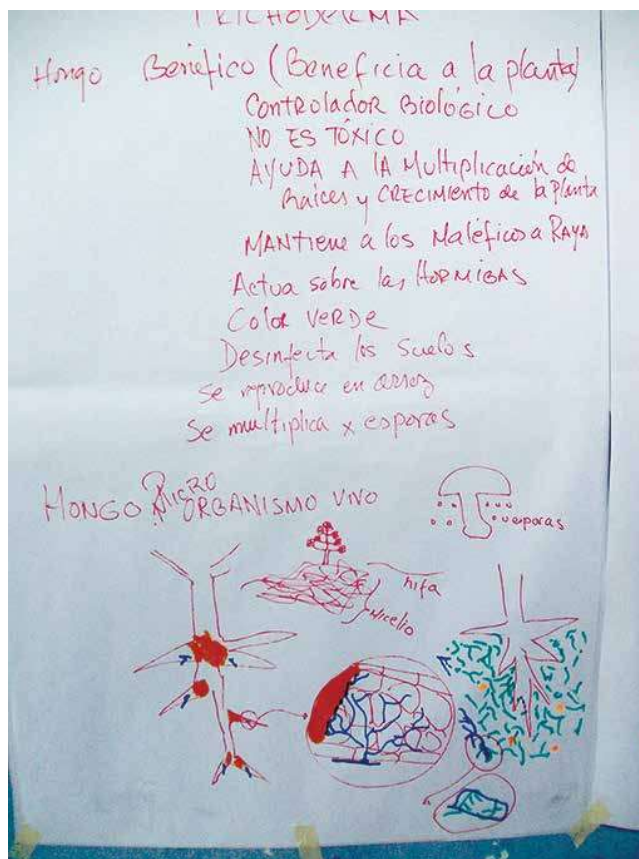 TRICHODERMA
Hongo Benéfico (Beneficia a la planta)
CONTROlADOR Biológico
NO ES TÓXICO
AYUDA A lA Multiplicación de
Raíces y CRECIMIENTO de la Planta
MANTiene a los Maléficos a RAYA
Actua sobre las HORMIGAS
Color VERDE
Desinfecta los Suelos
Se reproduce en arroz
Se multiplica x esporas
HONGO MICRO ORGANISMO VIVO
esporas
hifa
Micelio